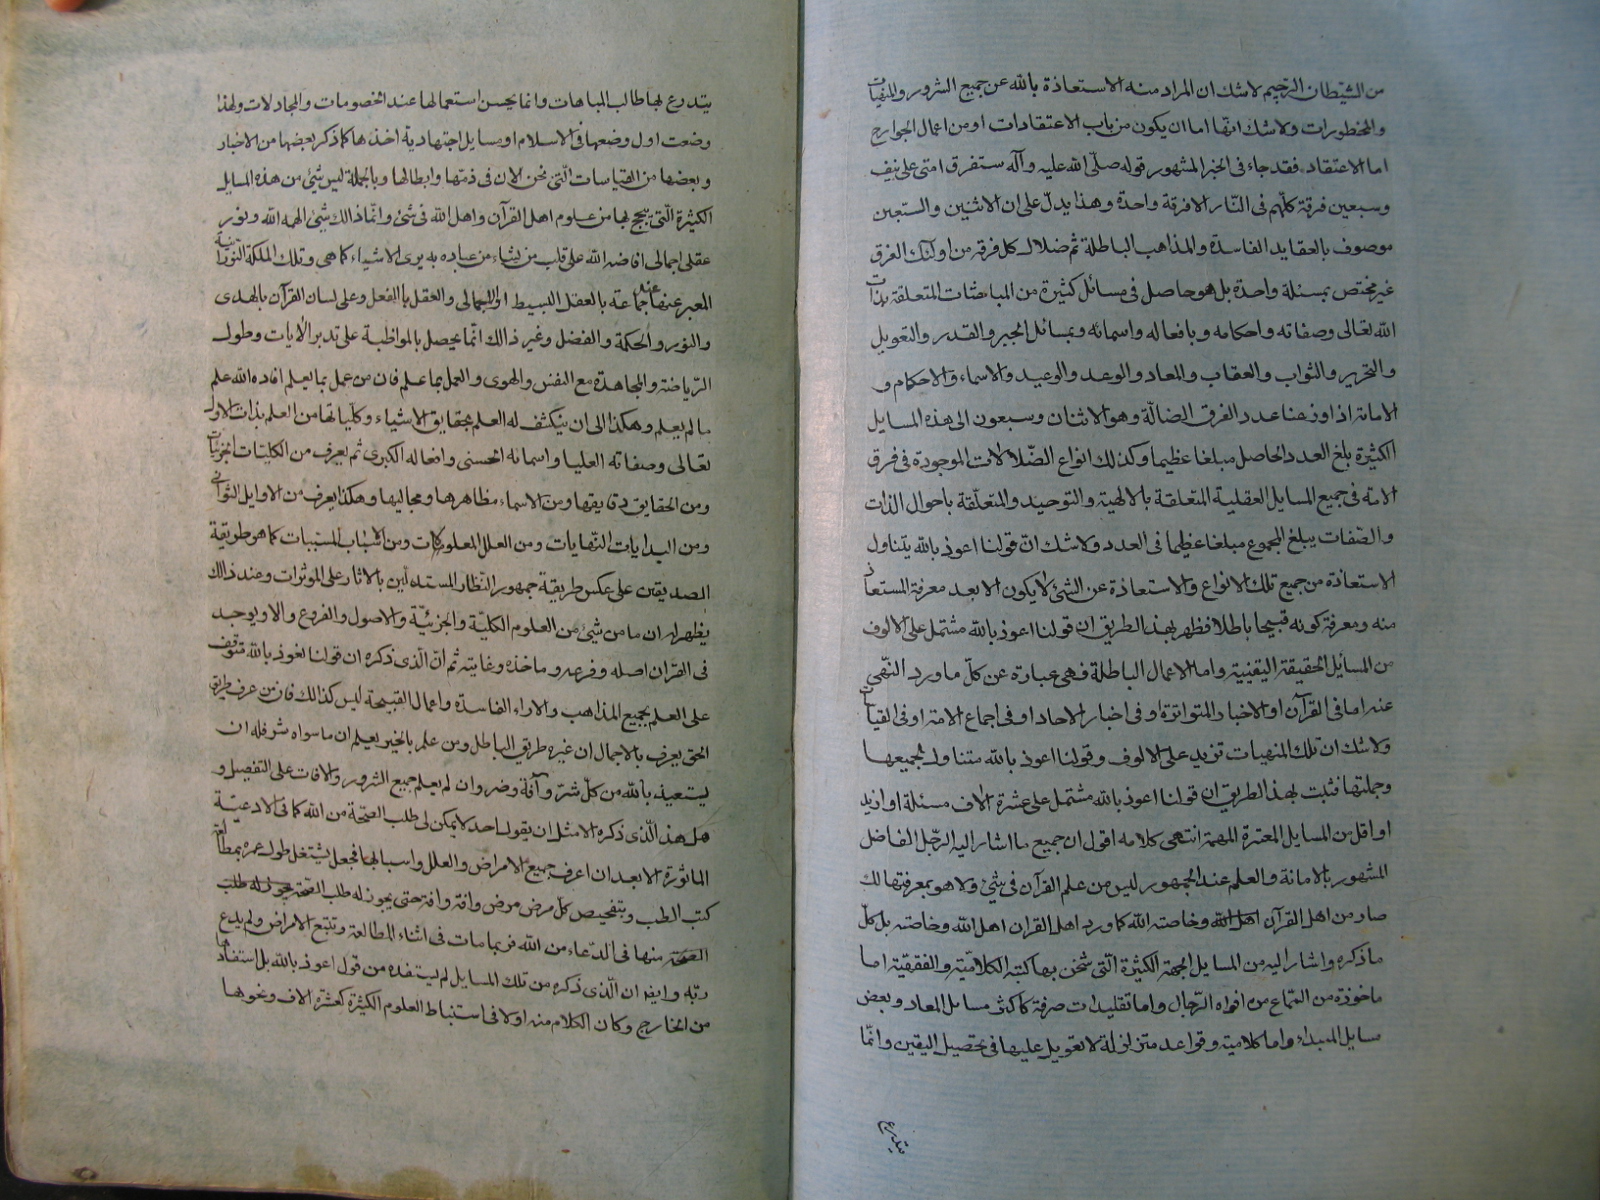 من الشيطان الرجيم لا شك ان المراد منه الاستعاذة بالله عن جميع الشرور والمنهيات
والمحظورات ولا شك انها اما ان يكون من باب الاعتقادات او من اعمال الجوارح
اما الاعتقاد فقد جاء فى الخبر المشهور قوله صلّى الله عليه وآله ستفرق امتى على نيف
وسبعين فرقة كلّهم فى النّار الا فرقة واحدة وهذا يدلّ على ان الاثنين والسبعين
موصوف بالعقايد الفاسدة والمذاهب الباطلة ثم ضلال كل فرقه من اولئك الفرق
غير مختص بمسئلة واحدة بل هو حاصل فى مسائل كثيرة من المباحثات المتعلقة بذات
الله تعالى وصفاته واحكامه وبافعاله واسمائه وبمسائل الجبر والقدر والتعويل
والتحرير والثواب والعقاب والمعاد والوعد والوعيد والاسماء والاحكام و
الامامة اذا وزعنا عدد الفرق الضالّة وهو الاثنان وسبعون الى هذه المسايل
الكثيرة بلغ العدد الحاصل مبلغا عظيما وكذلك انواع الضّلالات الموجودة فى فرق
الامة فى جميع المسايل العقلية المتعلقة بالالهية والتوحيد والمتعلّقة باحوال الذات
والصّفات يبلغ المجموع مبلغا عظيما فى العدد ولا شك انّ قولنا اعوذ بالله يتناول
الاستعاذة من جميع تلك الانواع والاستعاذة عن الشئ لا يكون الا بعد معرفة المستعاذ
منه ومعرفة كونه قبيحا باطلا فظهر بهذا الطريق ان قولنا اعوذ بالله مشتمل على الالوف
من المسائل الحقيقة اليقينية واما الاعمال الباطلة فهى عبارة عن كلّ ما ورد النّهى
عنه اما فى القرآن او الاخبار المتواترة او فى اخبار الاحاد او فى اجماع الامة او فى القياس
ولا شك ان تلك المنهيات تزيد على الالوف وقولنا اعوذ بالله متناول لجميعها
وجملتها فثبت بهذا الطريق ان قولنا اعوذ بالله مشتمل على عشرة الاف مسئلة او ازيد
او اقل من المسايل المعتبرة المهمة انتهى كلامه اقول ان جميع ما اشار اليه الرجّل الفاضل
المشهور بالامانة والعلم عند الجمهور ليس من علم القرآن فى شئ ولا هو بمعرفتها لك
صار من اهل القرآن اهل الله وخاصته الله كما ورد اهل القران اهل الله وخاصته بل كلّ
ما ذكره واشار اليه من المسايل الجمة الكثيرة الّتى شحن بها كتبه الكلاميّة والفقهية اما
ماخوذة من السّماع من افواه الرّجال واما تقليدات صرفة كاكثر مسايل المعاد وبعض
مسايل المبداء واما كلامية وقواعد متزلزلة لا تعويل عليها فى تحصيل اليقين وانّما
يتدرع
يتدرع بها طالب المباهات وانما يحسن استعمالها عند الخصومات والمجادلات ولهذا
وضعت اول وضعها فى الاسلام او مسايل اجتهادية اخذها كما ذكر بعضها من الاخبار
وبعضها من القياسات الّتى نحن الان فى ذمّها وابطالها وبالجملة ليس شئ من هذه المسايل
الكثيرة الّتى يبجح بها من علوم اهل القرآن واهل الله فى شئ وانّما ذالك شئ الهمه الله ونور
عقلى اجمالى افاضه الله على قلب من يشاء من عباده به يرى الاشياء كما هى وتلك الملكة النّورانية
المعبر عنها عند جماعة بالعقل البسيط الاجمالى والعقل بالفعل وعلى لسان القرآن بالهدى
والنور والحكمة والفضل وغير ذالك انّما يحصل بالمواظبة على تدبر الايات وطول
الرّياضة والمجاهدة مع النفس والهوى والعمل بما علم فان من عمل بما يعلم افاده الله علم
ما لم يعلم وهكذا الى ان ينكشف له العلم بحقايق الاشياء وكلّياتها من العلم بذات الاول
تعالى وصفاته العليا واسمائه الحسنى وافعاله الكبرى ثم يعرف من الكليّات الجزئيات
ومن الحقايق دقايقها ومن الاسماء مظاهرها ومجاليها وهكذا يعرف من الاوايل الثوانى
ومن البدايات النّهايات ومن العلل المعلولات ومن الاسباب المسببات كما هو طريقة
الصديقين على عكس طريقة جمهور النّظار المستدلّين بالاثار على الموثرات وعند ذالك
يظهر له ان ما من شئ من العلوم الكليّة والجزئيّة والاصول والفروع والا ويوجد
فى القرآن اصله وفرعه وماخذه وغايته ثم انّ الّذى ذكره ان قولنا نعوذ بالله متوقف
على العلم بجميع المذاهب والاراء الفاسدة واعمال القبيحة ليس كذالك فان من عرف طريق
الحق يعرف بالاجمال ان غيره طريق الباطل ومن علم بالخير يعلم ان ما سواه شر فله ان
يستعيذ بالله من كلّ شرّ وآفة وضر وان لم يعلم جميع الشرور والافات على التفصيل و
هل هذا الّذى ذكره الا مثل ان يقول احد لا يمكن لى طلب الصحّة من الله كما فى الادعيّة
الماثورة الا بعد ان اعرف جميع الامراض والعلل واسبابها فجعل يشتغل طول عمره بمطالعة
كتب الطب وبتفحيص كلّ مرض مرض وافة وافة حتى يجوز له طلب الصحّة يجوز له طلب
الصحّة منها فى الدعاء من الله فربما مات فى اثناء المطالعة وتتبع الامراض ولم يدع
ربّه وايضا ان الّذى ذكره من تلك المسايل لم يستفده من قول اعوذ بالله بل استفادها
من الخارج وكان الكلام منه اولا فى استنباط العلوم الكثيرة كعشرة الاف ونحوها